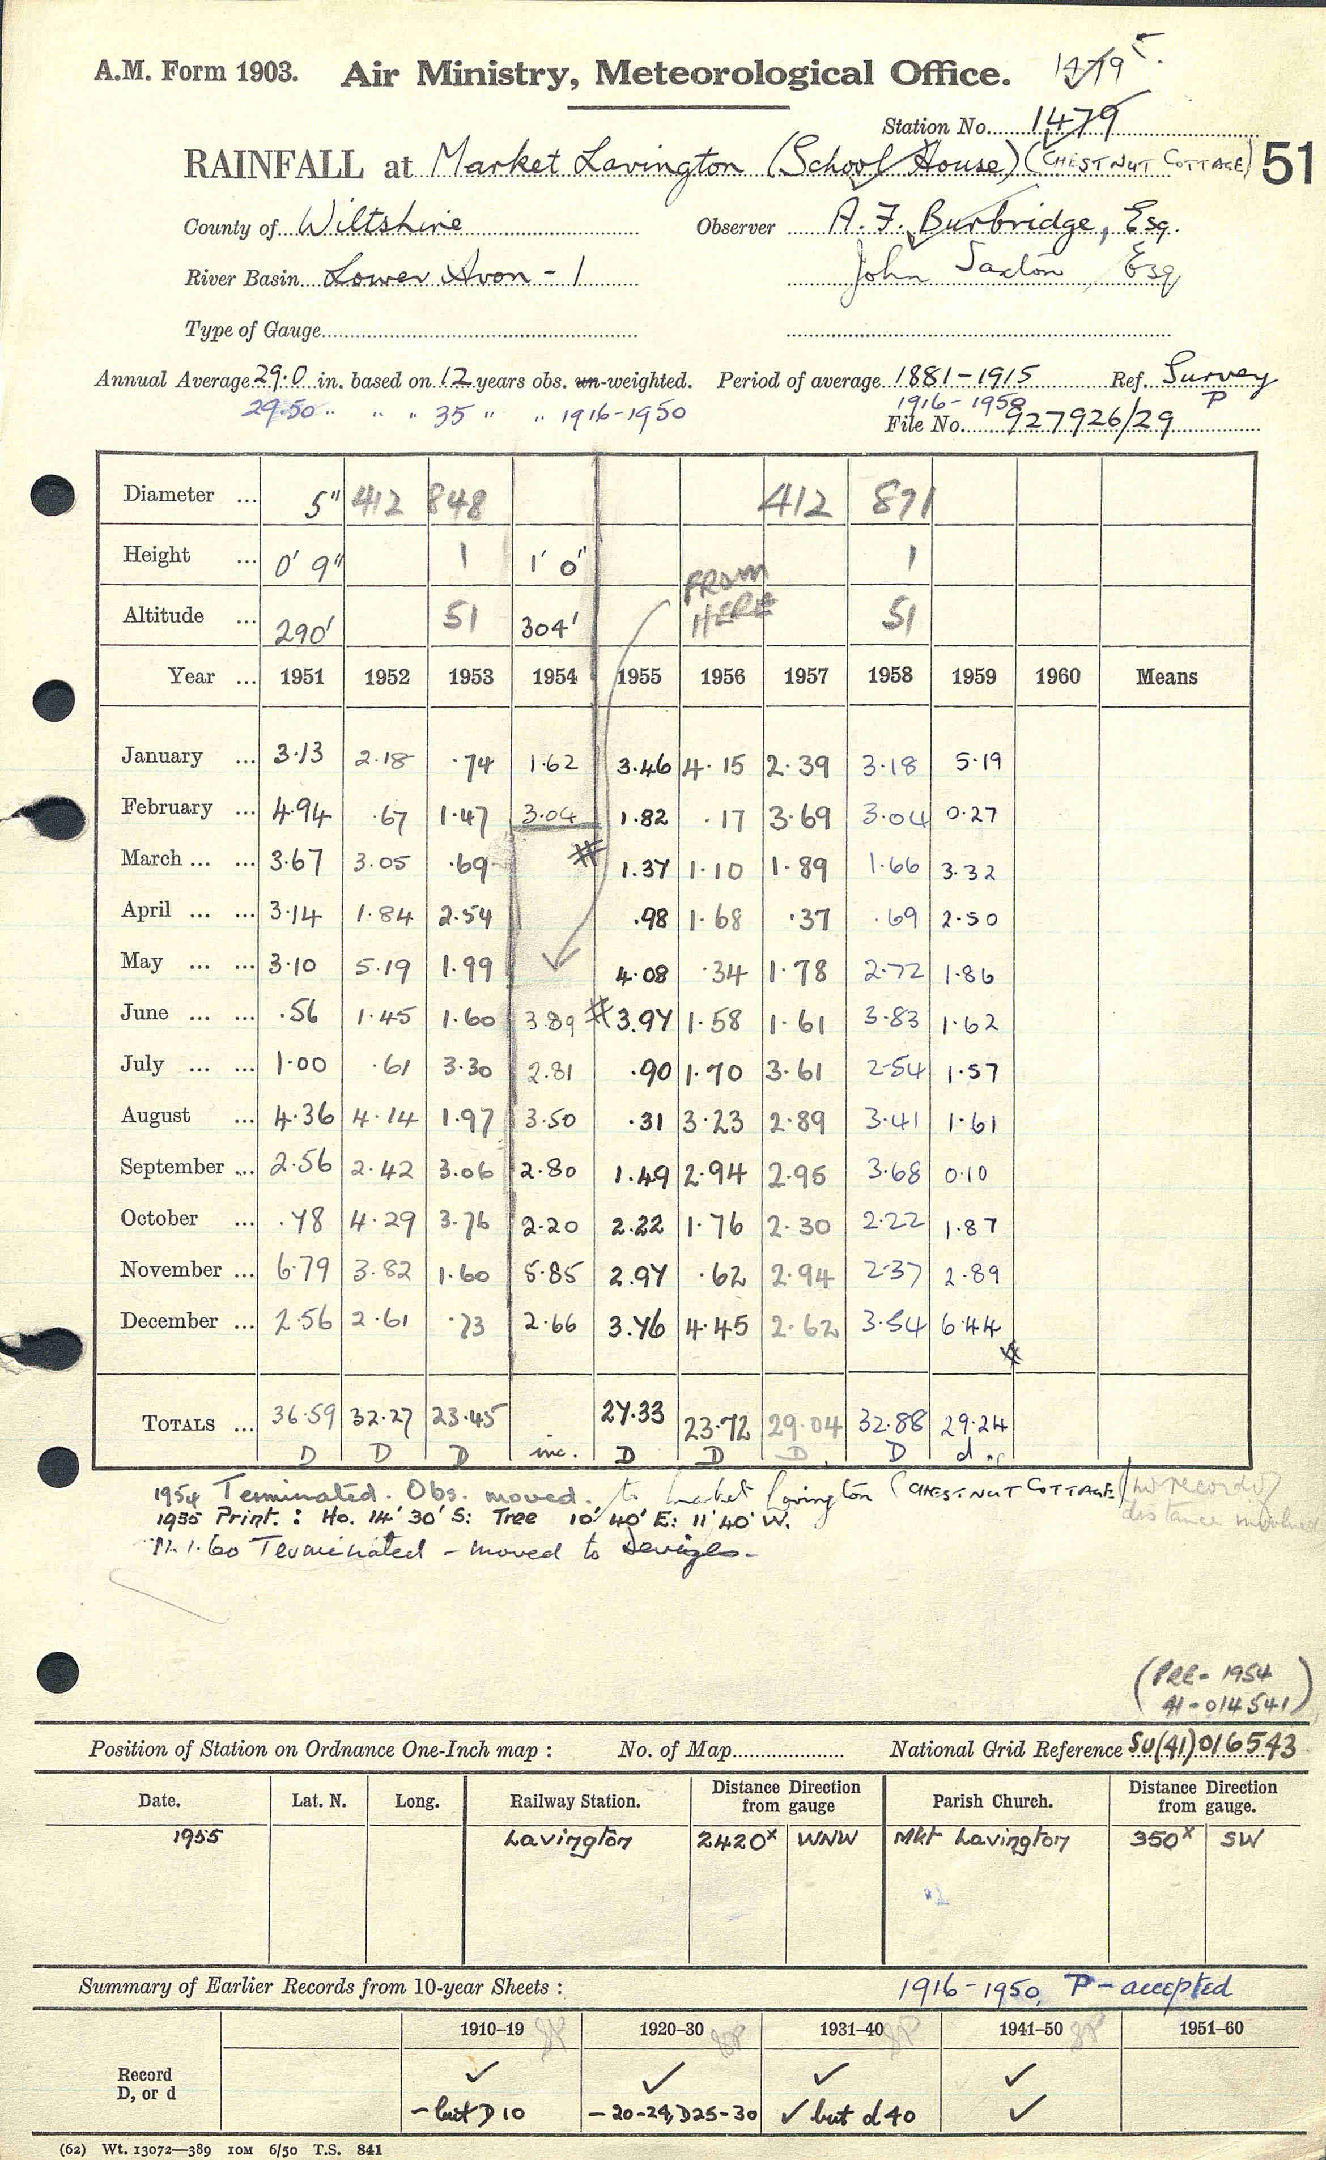 A.M. Form 1903. Air Ministry, Meteorological Office. 1479
Station No. 1479
RAINFALL at Market Lavington (School House) (CHESTNUT COTTAGE) 51
County of Wiltshire Observer A. F. Burbridge, Esq.
River Basin Lower Avon - 1 John Saxton Esq
Type of Gauge
Annual Average 29.0 in. based on 12 years obs. un-weighted. Period of average 1881-1915 Ref. Survey
29.50 " " " 35 " " 1916-1950 1916-1950 P
File No. 927926/29
Diameter ... 5" 412 848 412 871
Height ... 0' 9" 1 1' 0" 1
FROM HERE
Altitude ... 290' 51 304' 51
Year ... 1951 1952 1953 1954 1955 1956 1957 1958 1959 1960 Means
January ... 3.13 2.18 .74 1.62 3.46 4.15 2.39 3.18 5.19
February ... 4.94 .67 1.47 3.04 1.82 .17 3.69 3.04 0.27
March ... ... 3.67 3.05 .69 # 1.37 1.10 1.89 1.66 3.32
April ... ... 3.14 1.84 2.54 .98 1.68 .37 .69 2.50
May ... ... 3.10 5.19 1.99 4.08 .34 1.78 2.72 1.86
June ... ... .56 1.45 1.60 3.89 # 3.97 1.58 1.61 3.83 1.62
July ... ... 1.00 .61 3.30 2.81 .90 1.70 3.61 2.54 1.57
August ... 4.36 4.14 1.97 3.50 .31 3.23 2.89 3.41 1.61
September ... 2.56 2.42 3.06 2.80 1.49 2.94 2.95 3.68 0.10
October ... .78 4.29 3.76 2.20 2.22 1.76 2.30 2.22 1.87
November ... 6.79 3.82 1.60 5.85 2.97 .62 2.94 2.37 2.89
December ... 2.56 2.61 .73 2.66 3.76 4.45 2.62 3.54 6.44
#
TOTALS ... 36.59 32.27 23.45 27.33 23.72 29.04 32.88 29.24
D D D inc. D D D D d
1954 Terminated. Obs. moved to Market Lavington (CHESTNUT COTTAGE)
distance involved
1955 Print.: Ho. 14° 30' S: Tree 10° 40' E: 11° 40' W.
11.1.60 Terminated - moved to Devizes.
(PRE-1954
41-014541)
Position of Station on Ordnance One-Inch map : No. of Map National Grid Reference SU(41)016543
Date. Lat. N. Long. Railway Station. Distance Direction from gauge Parish Church. Distance Direction from gauge.
1955 Lavington 2420x WNW Mkt Lavington 350x SW
Summary of Earlier Records from 10-year Sheets : 1916-1950, P-accepted
1910-19 1920-30 1931-40 1941-50 1951-60
Record ✓ ✓ ✓ ✓
D, or d - but D 10 - 20-24, D25-30 ✓ but d 40 ✓
(62) Wt. 13072—389 10M 6/50 T.S. 841